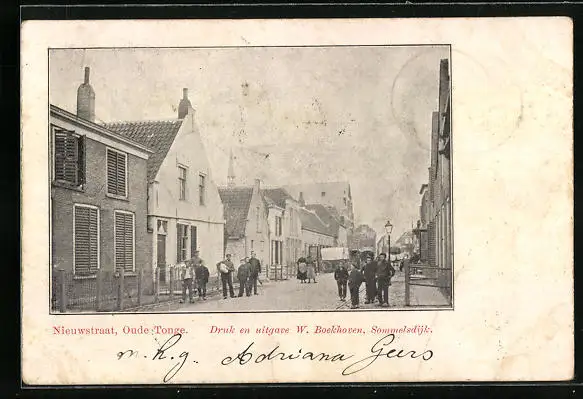 Nieuwstraat, Oude Tonge. Druk en uitgave W. Boekhoven, Sommelsdijk.
m. h. g. Adriana Geers